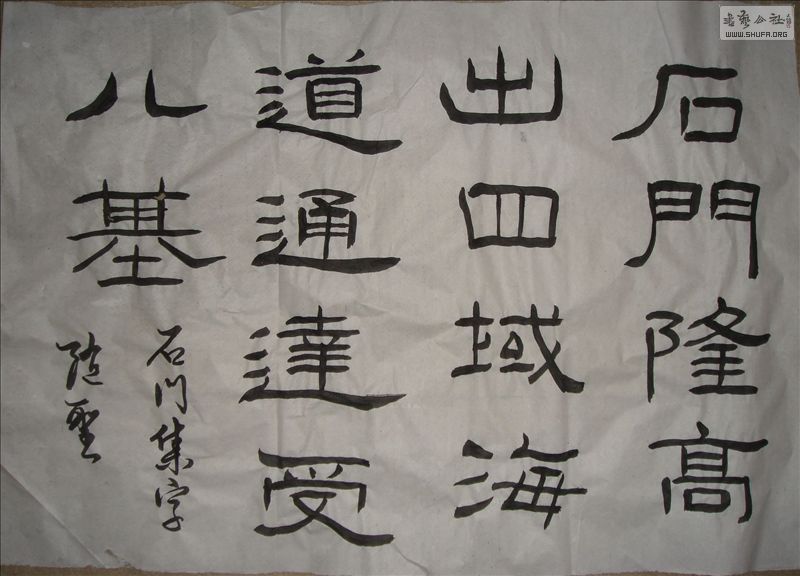 石門隆高
出四域海
道通達受
八基
石门集字
随聖
書藝公社
WWW.SHUFA.ORG